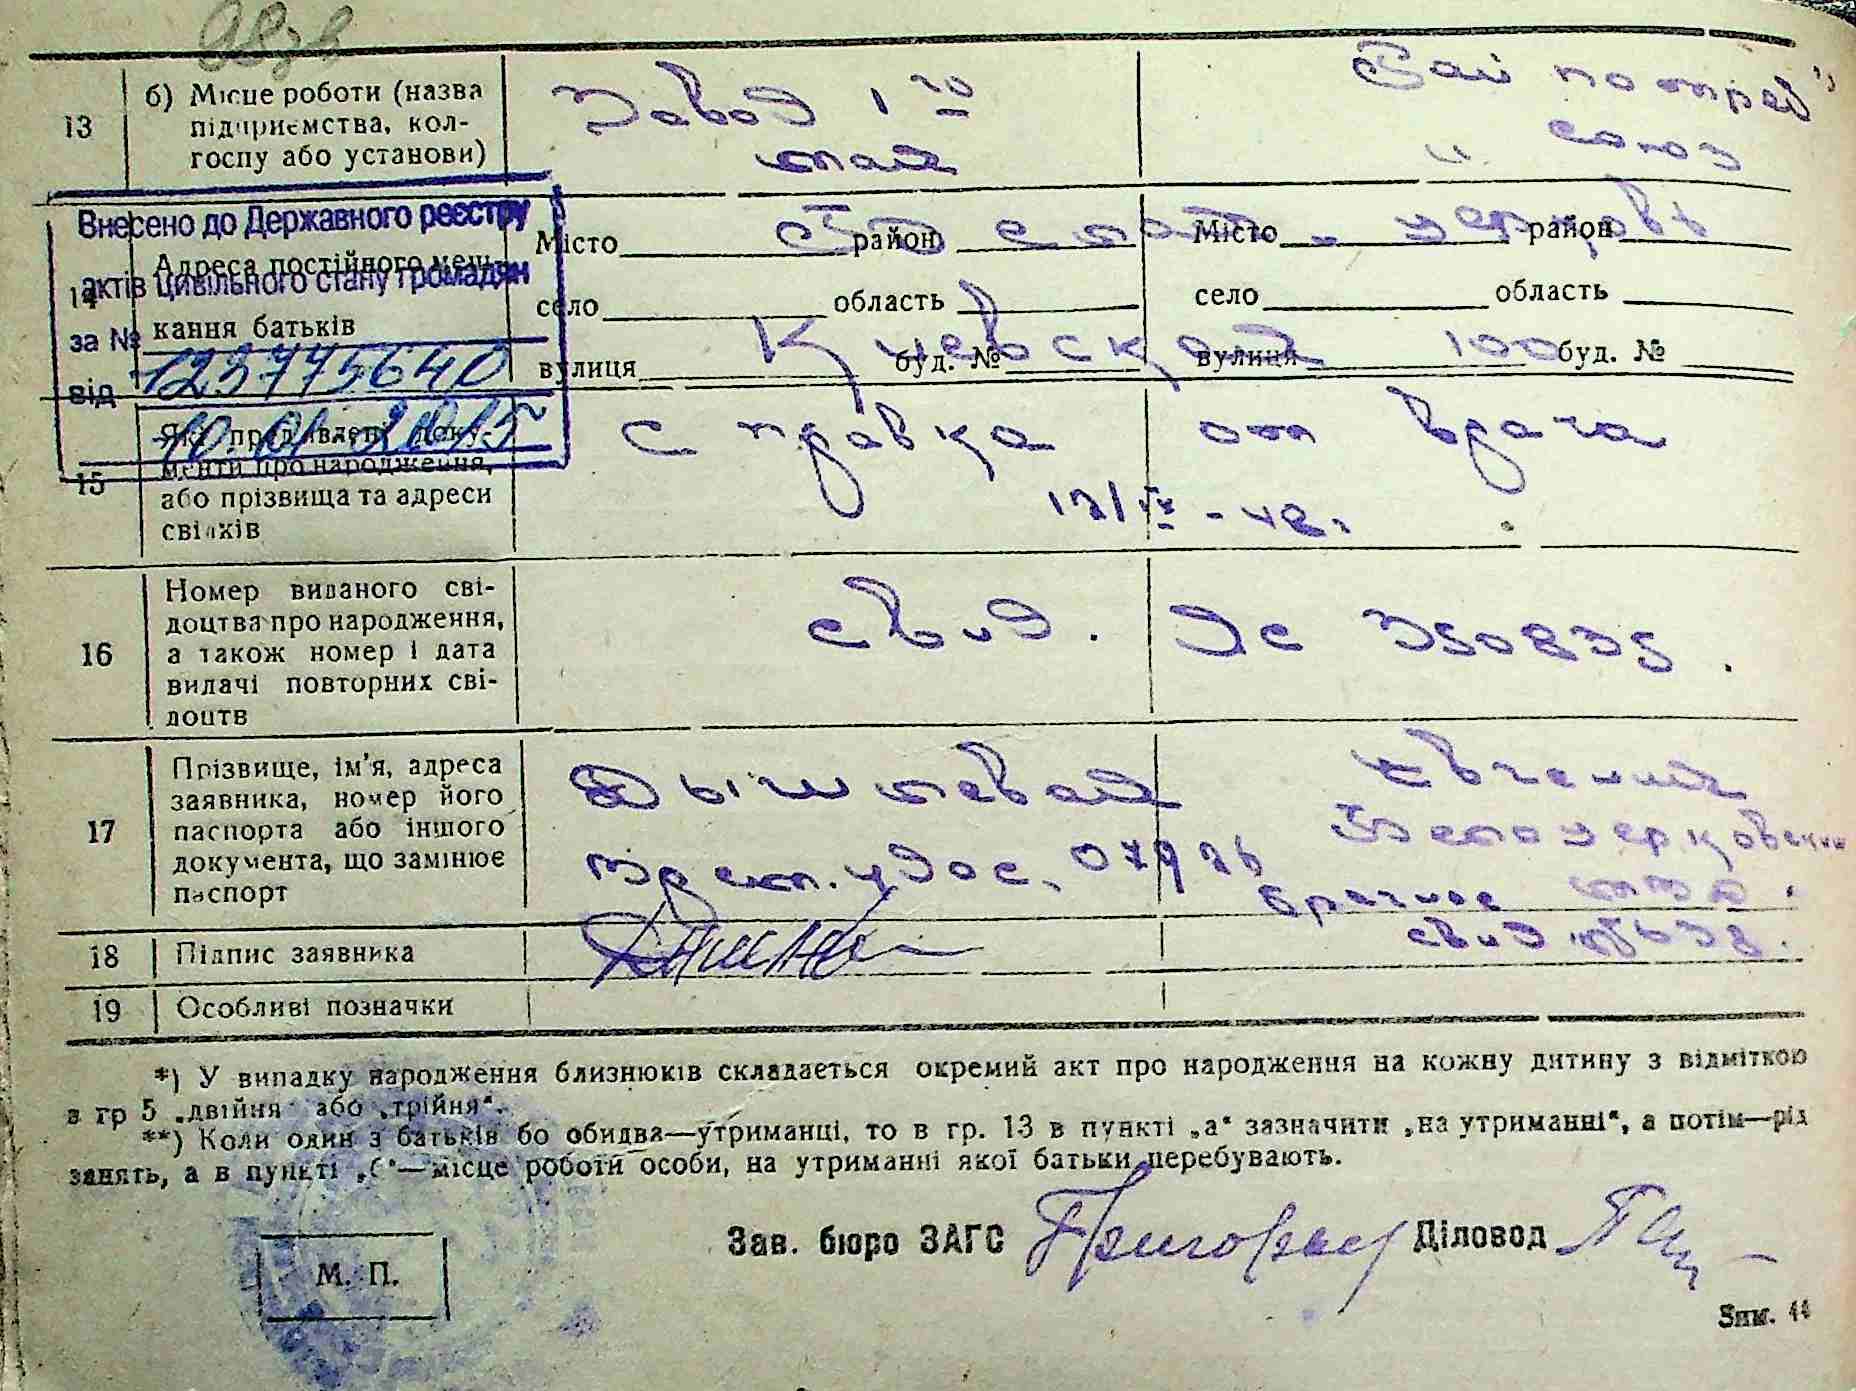 13
б) Місце роботи (назва підприємства, колгоспу або установи)
Завод 1го
мая
Рай потреб
союз
Внесено до Державного реєстру
актів цивільного стану громадян
за № 123775640
від 10.01.2015
14
Адреса постійного меш-
кання батьків
Місто район Місто район
село область село область
вулиця буд. № вулиця буд. №
Киевская 100
15
Які пред'явлені доку-
менти про народження,
або прізвища та адреси
свідків
Справка от врача
16
Номер виданого сві-
доцтва про народження,
а також номер і дата
видачі повторних сві-
доцтв
свид. ЭС 350835.
17
Прізвище, ім'я, адреса
заявника, номер його
паспорта або іншого
документа, що замінює
паспорт
Евгений
Белоцерковским
брачное
свид
18 Підпис заявника
19 Особливі позначки
*) У випадку народження близнюків складається окремий акт про народження на кожну дитину з відміткою
в гр 5 „двійня" або „трійня".
**) Коли один з батьків бо обидва—утриманці, то в гр. 13 в пункті „а" зазначити „на утриманні", а потім—рід
занять, а в пункті „б"—місце роботи особи, на утриманні якої батьки перебувають.
М. П.
Зав. бюро ЗАГС Діловод
Зим. 44